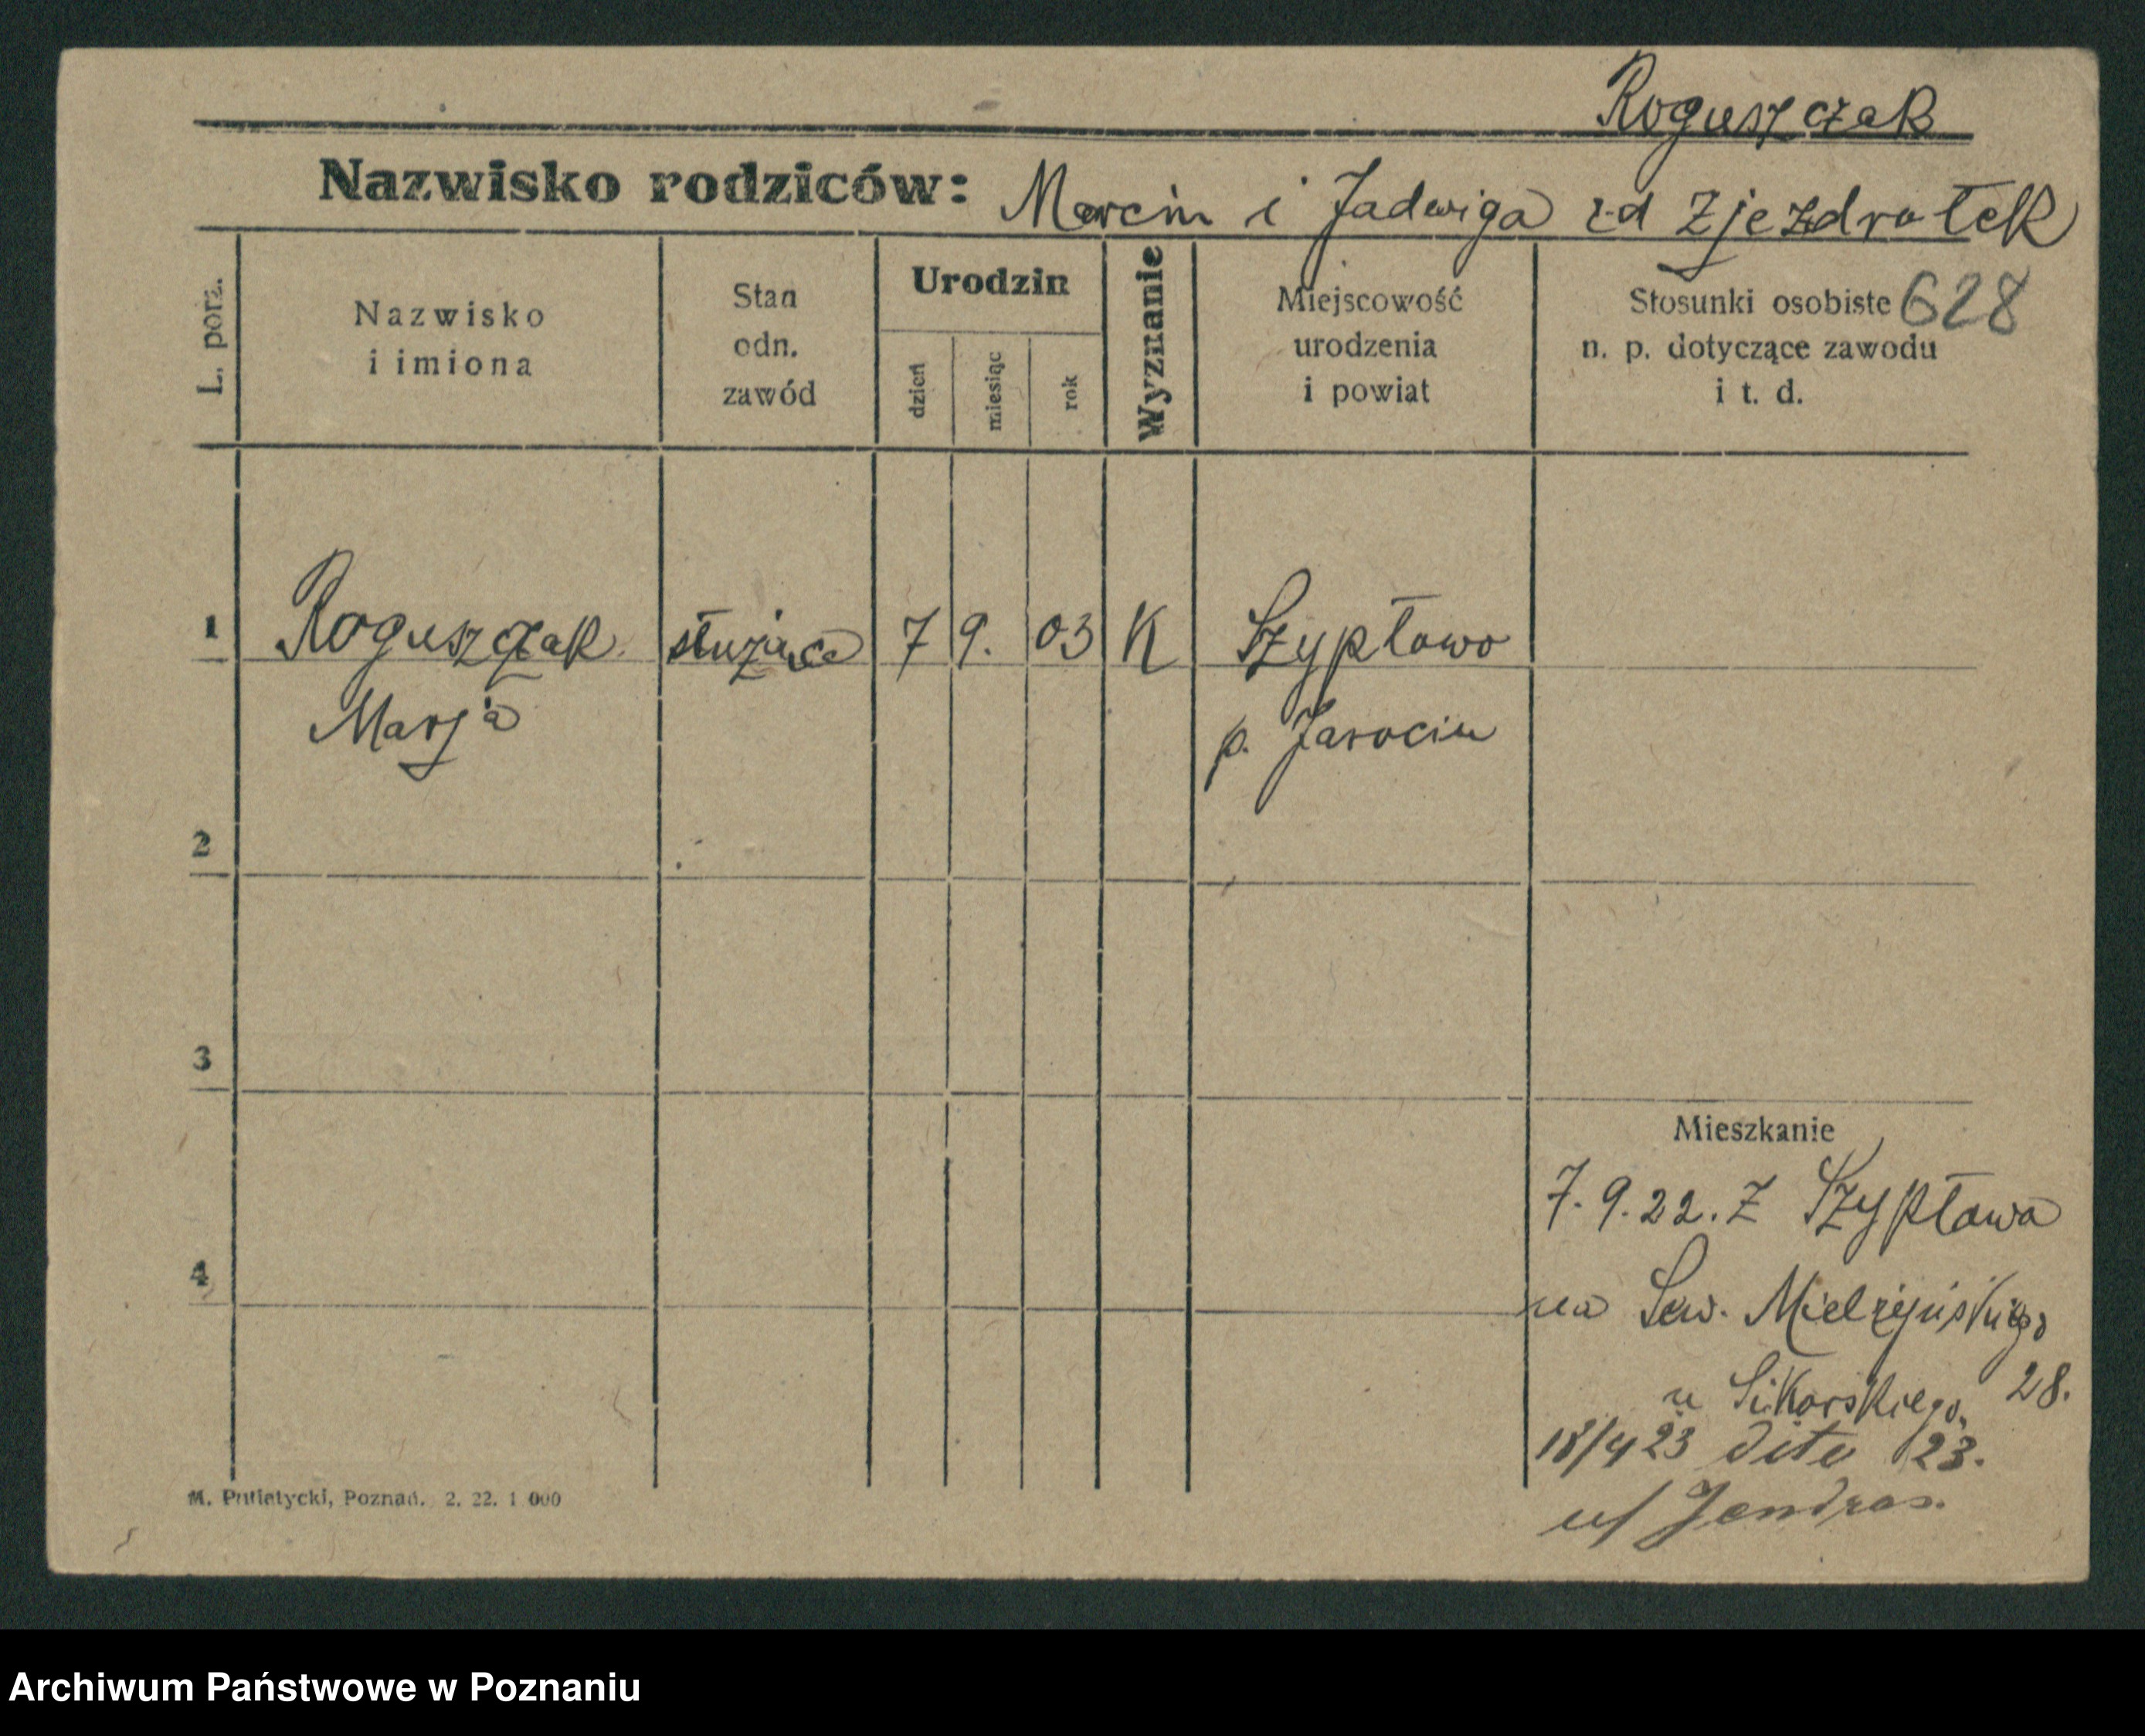 Roguszczak
Nazwisko rodziców: Marcin i Jadwiga z d Zjezdrałek
L. porz.
Nazwisko
i imiona
Stan
odn.
zawód
Urodzin
dzień
miesiąc
rok
Wyznanie
Miejscowość
urodzenia
i powiat
Stosunki osobiste 628
n. p. dotyczące zawodu
i t. d.
1 Roguszczak służąca 7 9. 03 K Szypłowo
Marja p. Jarocin
2
3
Mieszkanie
7. 9. 22. Z Szypłowa
4
na Sew. Mielżyńskiego
u Sikorskiego, 28.
18/4 23 dito 23.
u/ Jendras.
M. Putiatycki, Poznań. 2. 22. 1 000
Archiwum Państwowe w Poznaniu